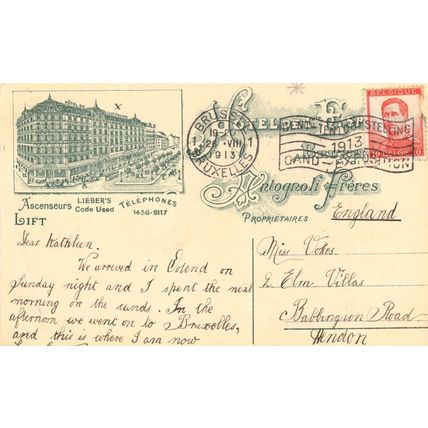 BRUSSEL
19-20
1 26-VIII 1
1913
BRUXELLES
BELGIQUE
GENT-TENTOONSTELLING
1913
GAND-EXPOSITION
Frères
PROPRIÉTAIRES
Ascenseurs
LIFT
LIEBER'S
Code Used
TÉLÉPHONES
1436-9117
x
England
Miss Vokes.
2 Elm Villas
Babbington Road
Hendon
Dear Kathleen.
We arrived in Ostend on
Sunday night and I spent the next
morning on the sands. In the
afternoon we went on to Bruxelles,
and this is where I am now